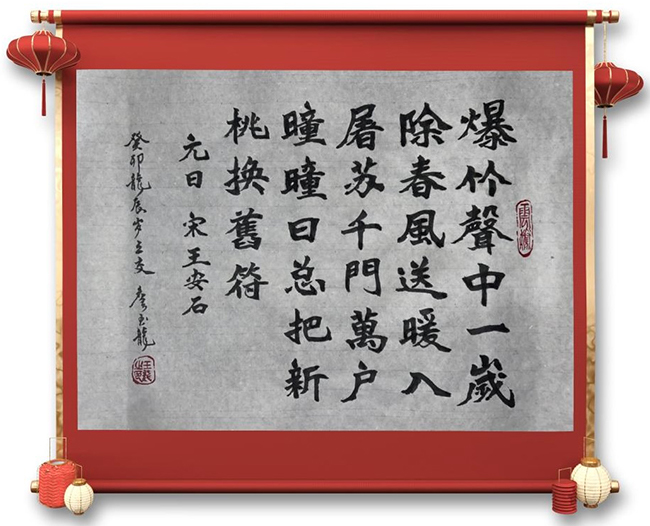 爆竹聲中一歲
除春風送暖入
屠苏千門萬户
曈曈日总把新
桃换舊符
元日 宋王安石
癸卯龍辰岁之交 玉龍